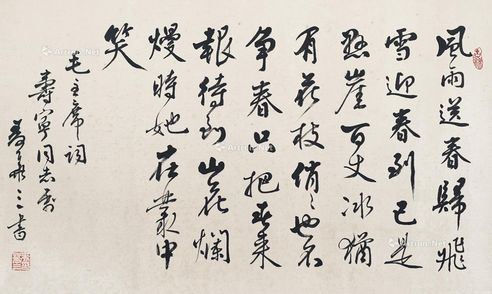 風雨送春歸飛
雪迎春到已是
懸崖百丈冰猶
有花枝俏々也不
争春只把春來
報待到山花爛
熳時她在叢中
笑
毛主席詞
壽寧同志屬
書
Artron.Net